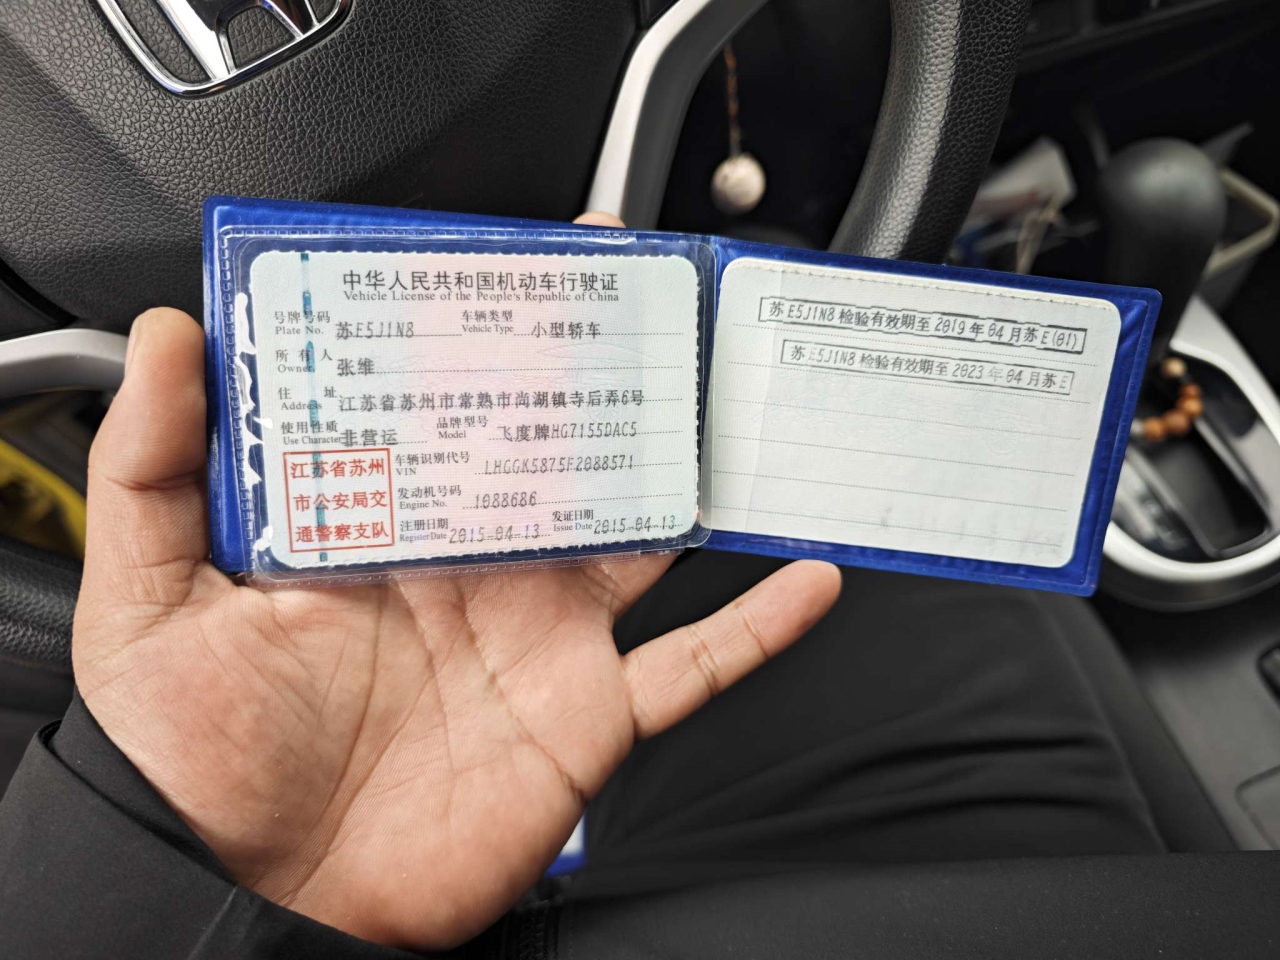 中华人民共和国机动车行驶证
Vehicle License of the People's Republic of China
号牌号码 Plate No. 苏E5J1N8 车辆类型 Vehicle Type 小型轿车
所有人 Owner 张维
住址 Address 江苏省苏州市常熟市尚湖镇寺后弄6号
使用性质 Use Character 非营运 品牌型号 Model 飞度牌HG7155DAC5
车辆识别代号 VIN LHGGK5875F2088571
发动机号码 Engine No. 1088686
注册日期 Register Date 2015-04-13 发证日期 Issue Date 2015-04-13
江苏省苏州
市公安局交
通警察支队
苏E5J1N8 检验有效期至 2019 年 04 月苏E(01)
苏E5J1N8 检验有效期至 2023 年 04 月苏E